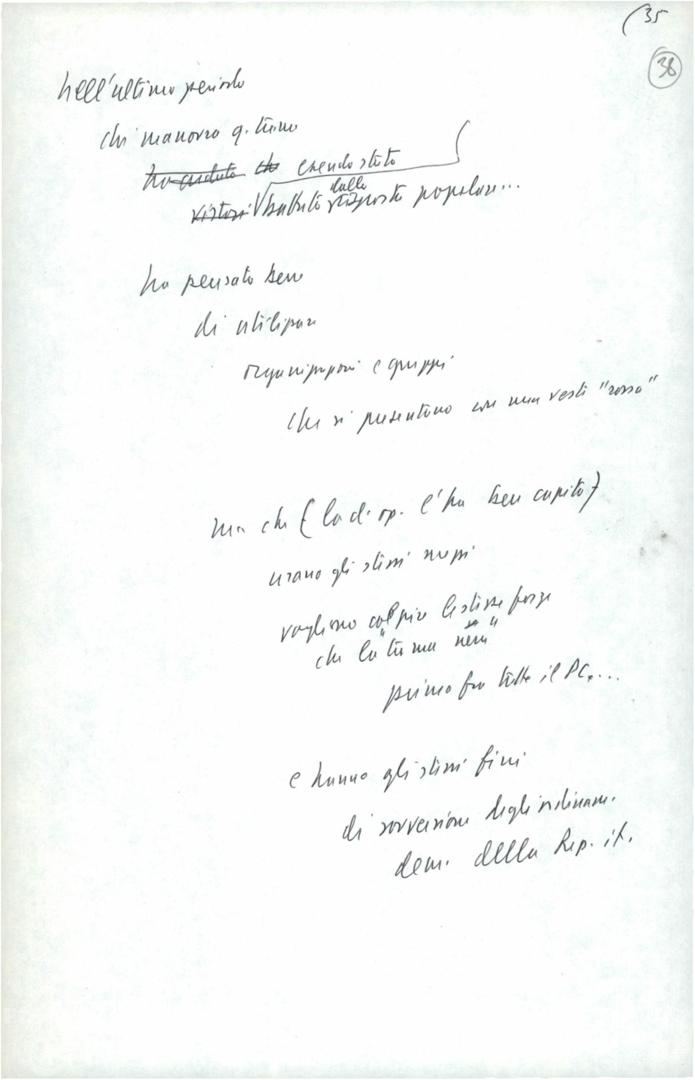 (35
38
nell'ultimo periodo
chi manovra q. trame
ha creduto che essendo stato
vistosi battuto dalla risposta popolare...
ha pensato bene
di utilizzare
organizzazioni e gruppi
che si presentano con una veste "rossa"
ma che (la d. op. l'ha ben capito)
usano gli stessi mezzi
vogliono colpire le stesse forze
che la "trama nera"
primo fra tutte il PC....
e hanno gli stessi fini
di sovversione degli ordinam.
dem. della Rep. it.